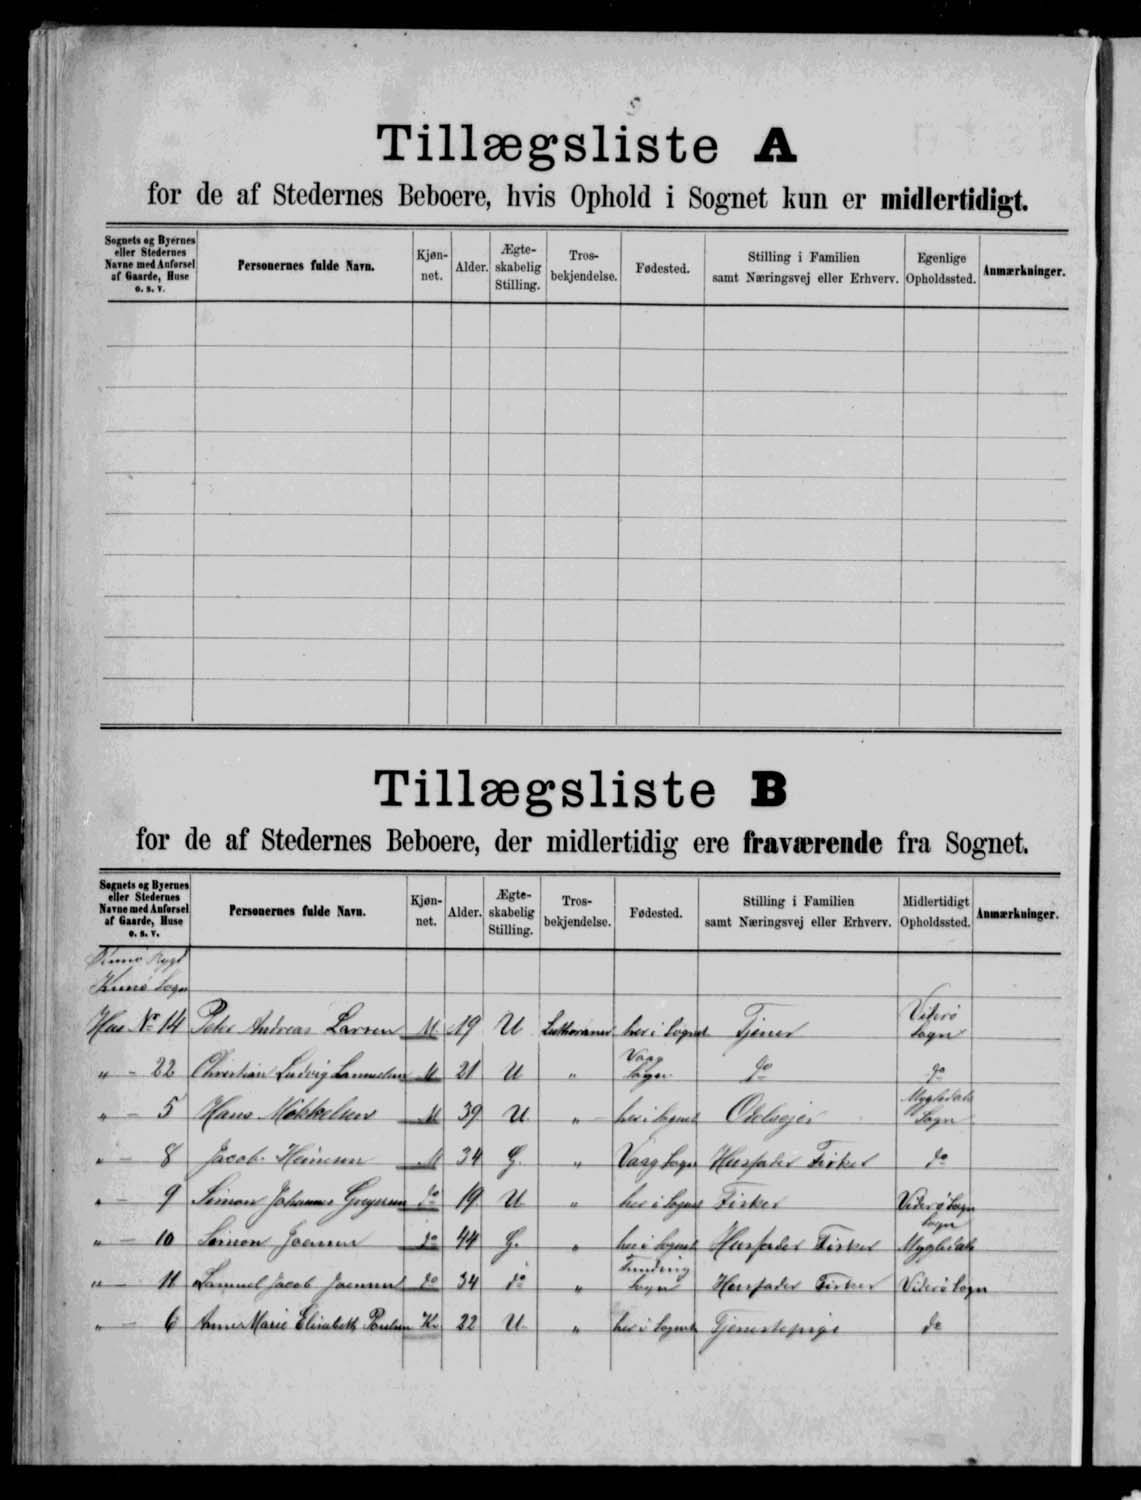 Tillægsliste A
for de af Stedernes Beboere, hvis Ophold i Sognet kun er midlertidigt.
Sognets og Byernes eller Stedernes Navne med Anførsel af Gaarde, Huse o. s. v. Personernes fulde Navn. Kjøn-net. Alder. Ægte-skabelig Stilling. Tros-bekjendelse. Fødested. Stilling i Familien samt Næringsvej eller Erhverv. Egenlige Opholdssted. Anmærkninger.
Tillægsliste B
for de af Stedernes Beboere, der midlertidig ere fraværende fra Sognet.
Sognets og Byernes eller Stedernes Navne med Anførsel af Gaarde, Huse o. s. v. Personernes fulde Navn. Kjøn-net. Alder. Ægte-skabelig Stilling. Tros-bekjendelse. Fødested. Stilling i Familien samt Næringsvej eller Erhverv. Midlertidigt Opholdssted. Anmærkninger.
Kunø Bygd
Kunø Sogn
Hus No 14 Peter Andreas Larsen M 19 U Lutheraner her i Sognet Tjener Viderø Sogn
" - 22 Christian Ludvig Samuelsen M 21 U " Vaag Sogn do do
" - 5 Hans Mikkelsen M 39 U " her i Sognet Odelsejer Mygledals Sogn
" - 8 Jacob Heinesen M 34 G. " Vaag Sogn Husfader Fisker do
" - 9 Simon Johannes Gregersen do 19 U " her i Sognet Fisker Viderø Sogn
" - 10 Simon Joensen do 44 G. " her i Sognet Husfader Fisker Mygledals Sogn
" - 11 Samuel Jacob Joensen do 34 do " Funding Sogn Husfader Fisker Viderø Sogn
" - 6 Anne Marie Elisabeth Poulsen K. 22 U. " her i Sognet Tjenestepige do